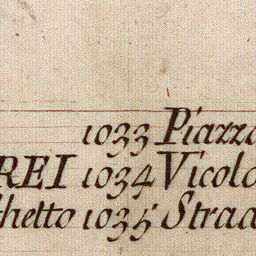 1033 Piazza
REI 1034 Vicolo
ghetto 1035 Strad